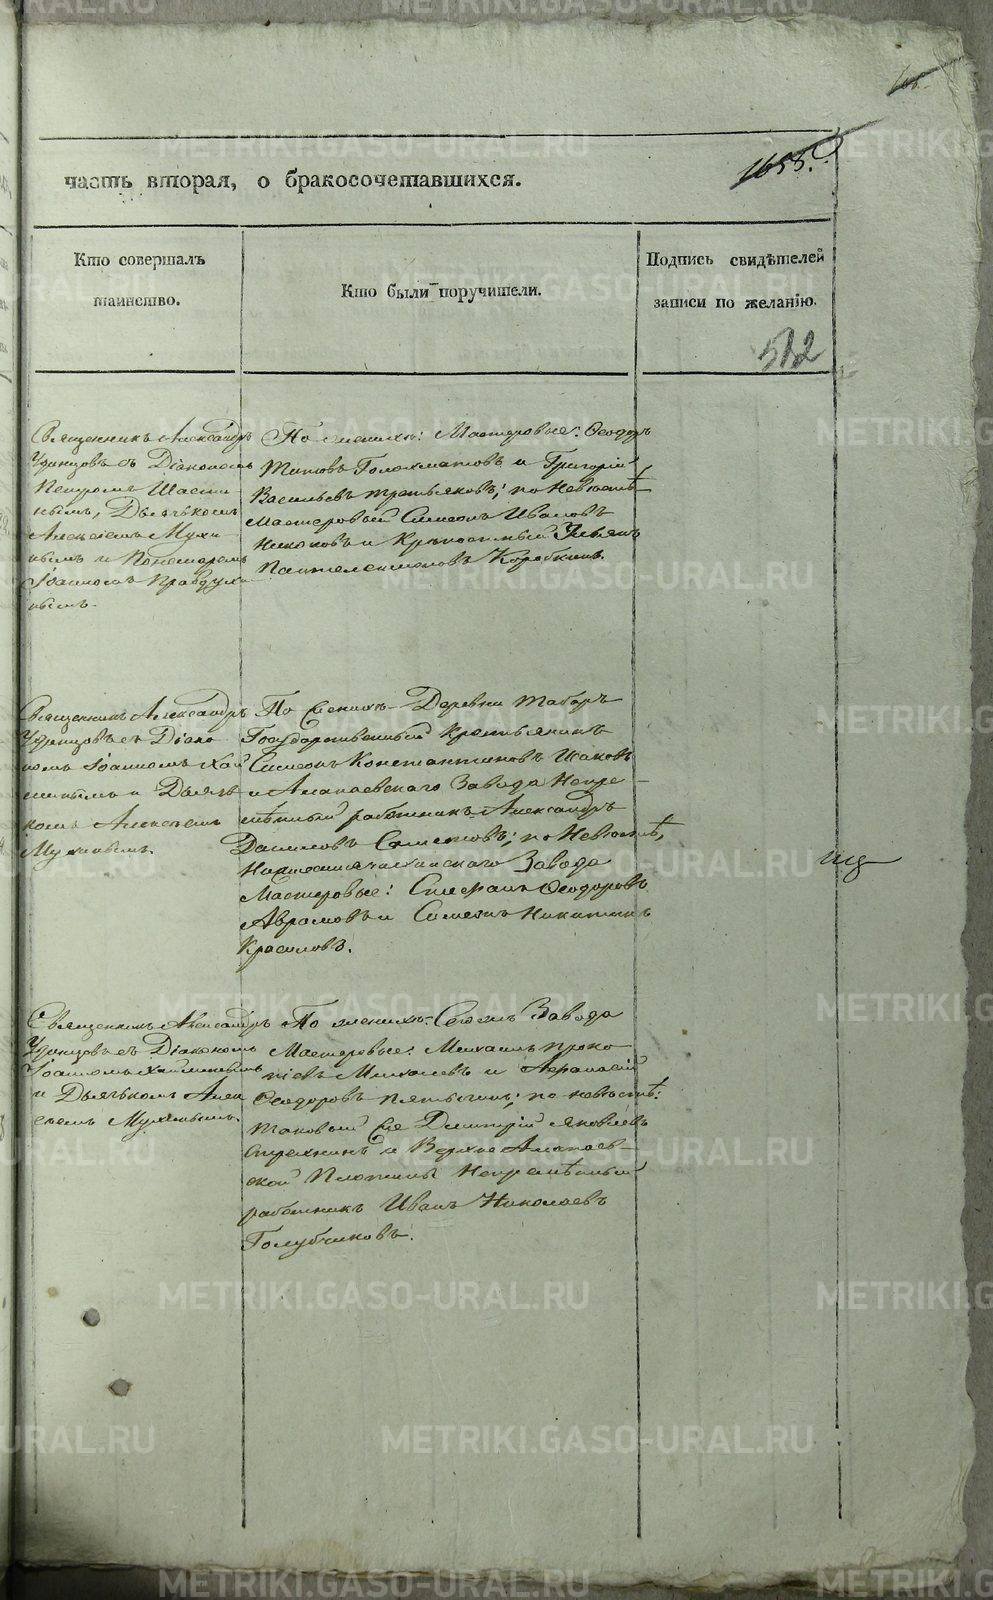 1655.
часть вторая, о бракосочетавшихся.
Кто совершалъ
таинство.
Кто были поручители.
Подпись свидѣтелей
записи по желанію.
512
Священникъ Александръ
Удинцовъ съ Діакономъ
Петромъ
нымъ, Дьячькомъ
Алексѣемъ Мухи
нымъ и Пономаремъ
Іоанномъ Правдухи
нымъ.
По женихѣ: Мастеровые: Ѳеодоръ
Титовъ Голохматовъ и Григорій
Васильевъ Третьяковъ; по Невѣстѣ
Мастеровый Симеонъ Ивановъ
Никоновъ и Крѣпостный
Пантелеимоновъ Коробкинъ.
Священникъ Александръ
Удинцовъ съ Діако
номъ Іоанномъ Хай
минымъ и Дьячь
комъ Алексѣемъ
Мухинымъ.
По Женихѣ Деревни Таборъ
Государственный Крестьянинъ
Симеонъ Константиновъ
и Алапаевскаго Завода Непре
мѣнный работникъ Александръ
Даниловъ Самсоновъ; по Невѣстѣ,
Нижнесинячихинскаго Завода
Мастеровые: Стефанъ Ѳеодоровъ
Аврамовъ и Симеонъ Никитинъ
Красиловъ.
Священникъ Александръ
Удинцовъ съ Діакономъ
Іоанномъ Хайминымъ
и Дьячькомъ Алек
сѣемъ Мухинымъ.
По женихѣ: Сего Завода
Мастеровые: Михаилъ Проко
піевъ и Аѳанасій
Ѳеодоровъ Пятыгинъ; по невѣстѣ:
таковый же Димитрій Яковлевъ
Стрехнинъ и Верхне Алапаев
ской Плотины Непремѣнный
работникъ Иванъ Николаевъ
Голубчиковъ.
METRIKI.GASO-URAL.RU